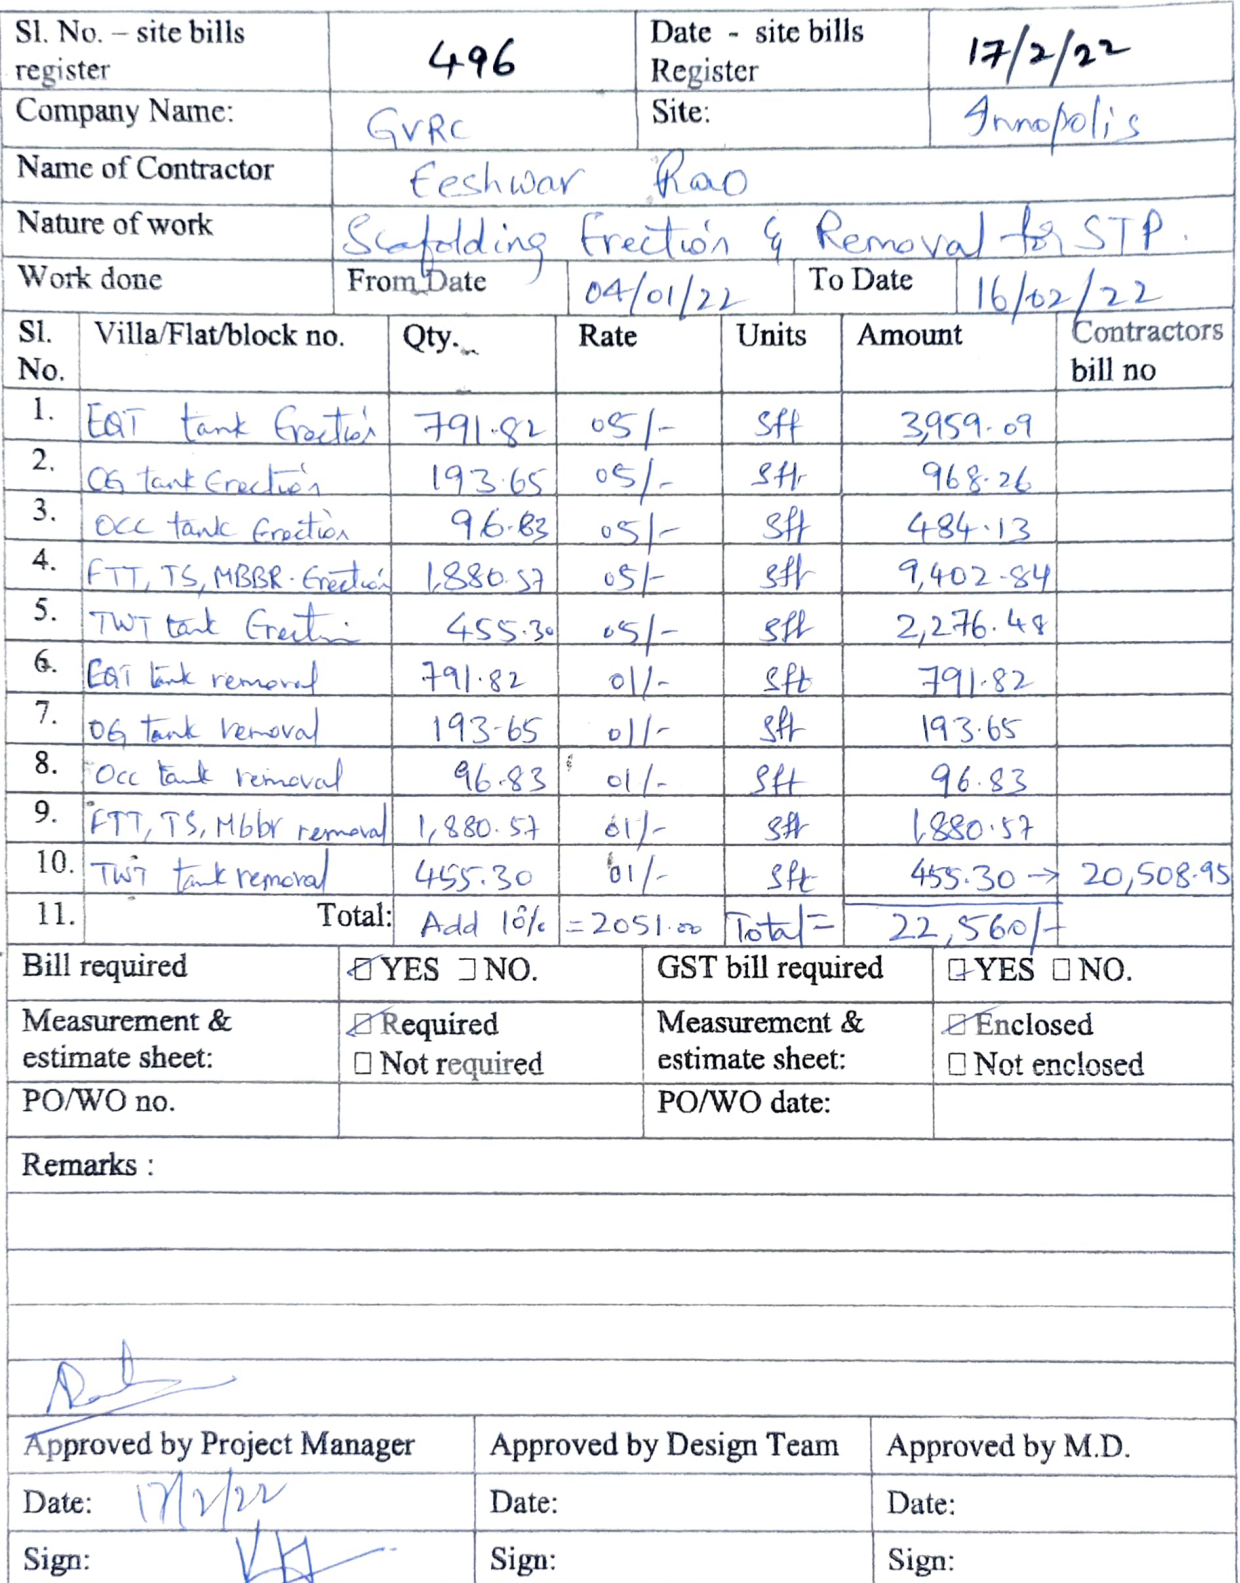 Sl. No. – site bills register 496 Date - site bills Register 17/2/22
Company Name: GVRC Site: Innopolis
Name of Contractor Eeshwar Rao
Nature of work Scafolding Erection & Removal for STP.
Work done From Date 04/01/22 To Date 16/02/22
Sl. No. Villa/Flat/block no. Qty. Rate Units Amount Contractors bill no
1. EQT tank Erection 791.82 05/- Sft 3,959.09
2. OG tank Erection 193.65 05/- Sft 968.26
3. OCC tank Erection 96.83 05/- Sft 484.13
4. FTT, TS, MBBR. Erection 1,880.57 05/- Sft 9,402.84
5. TWT tank Erection 455.30 05/- Sft 2,276.48
6. EQT tank removal 791.82 01/- Sft 791.82
7. OG tank removal 193.65 01/- Sft 193.65
8. Occ tank removal 96.83 01/- Sft 96.83
9. FTT, TS, Mbbr removal 1,880.57 01/- Sft 1,880.57
10. TWT tank removal 455.30 01/- Sft 455.30 → 20,508.95
11. Total: Add 10% = 2051.00 Total = 22,560/-
Bill required YES NO. GST bill required YES NO.
Measurement & estimate sheet: Required Not required Measurement & estimate sheet: Enclosed Not enclosed
PO/WO no. PO/WO date:
Remarks :
Approved by Project Manager Approved by Design Team Approved by M.D.
Date: 17/2/22 Date: Date:
Sign: Sign: Sign: